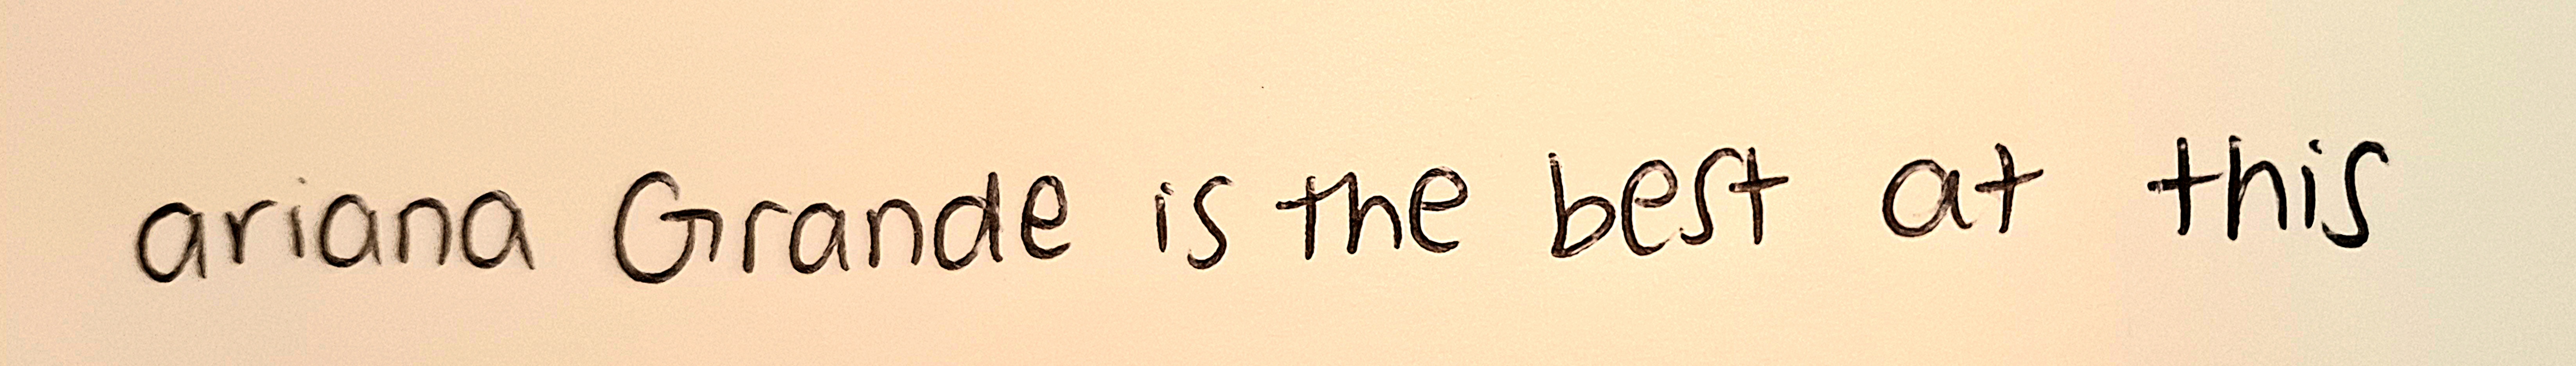 ariana Grande is the best at this